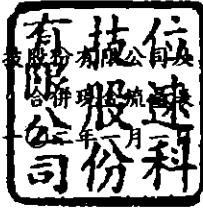 信速科
技股份
有限公司
股份有限公司及
合併現金流量表
年一月一